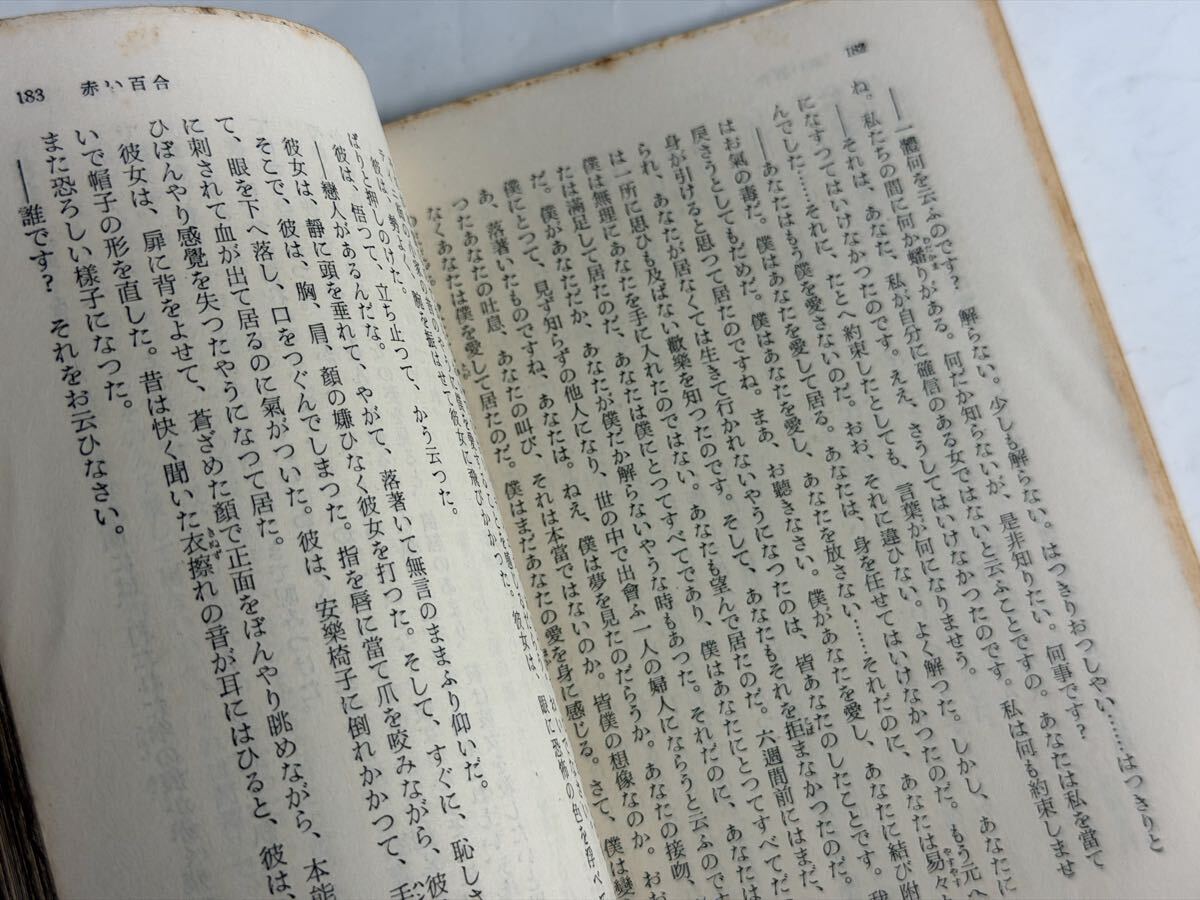 182
――一體何を云ふのです? 解らない。少しも解らない。はつきりおつしやい……はつきりと
ね。私たちの間に何か蟠りがある。何だか知らないが、是非知りたい。何事です?
――それは、あなた、私が自分に確信のある女ではないと云ふことですの。あなたは私を當て
になすつてはいけなかつたのです。ええ、さうしてはいけなかつたのです。私は何も約束しませ
んでした……それに、たとへ約束したとしても、言葉が何になりませう。
――あなたはもう僕を愛さないのだ。おお、それに違ひない。よく解つた。しかし、あなたに
はお氣の毒だ。僕はあなたを愛して居る。あなたは、身を任せてはいけなかつたのだ。もう元へ
戾さうとしてもだめだ。僕はあなたを愛し、あなたを放さない……それだのに、あなたは易々と
身が引けると思つて居たのですね。まあ、お聽きなさい。僕があなたを愛し、あなたに結び附
られ、あなたが居なくては生きて行かれないやうになつたのは、皆あなたのしたことです。我
は一所に思ひも及ばない歡樂を知つたのです。そして、あなたもそれを拒まなかつたのだ。
僕は無理にあなたを手に入れたのではない。あなたも望んで居たのだ。六週間前にはまだ、
たは滿足して居たのだ、あなたは僕にとつてすべてであり、僕はあなたにとつてすべてだ
だ。僕があなただか、あなたが僕だか解らないやうな時もあつた。それだのに、あなたは
僕にとつて、見ず知らずの他人になり、世の中で出會ふ一人の婦人にならうと云ふのです
あ、落著いたものですね、あなたは。ねえ、僕は夢を見たのだらうか。あなたの接吻、
つたあなたの吐息、あなたの叫び、それは本當ではないのか。皆僕の想像なのか。おお
なくあなたは僕を愛して居たのだ。僕はまだあなたの愛を身に感じる。さて、僕は變
183 赤い百合
眼に恐怖の色を浮べ
ばりと押しのけた。
彼は、悟つて、立ち止つて、かう云つた。
――戀人があるんだな。
彼女は、靜に頭を垂れて、やがて、落著いて無言のままふり仰いだ。
彼は、胸、肩、顏の嫌ひなく彼女を打つた。そして、すぐに、恥しさ
て、眼を下へ落し、口をつぐんでしまつた。指を唇に當て爪を咬みながら、彼
に刺されて血が出て居るのに氣がついた。彼は、安樂椅子に倒れかかつて、手
ひぼんやり感覺を失つたやうになつて居た。
彼女は、扉に背をよせて、蒼ざめた顏で正面をぼんやり眺めながら、本能
いで帽子の形を直した。昔は快く聞いた衣擦れの音が耳にはひると、彼は、
また恐ろしい樣子になつた。
――誰です? それをお云ひなさい。